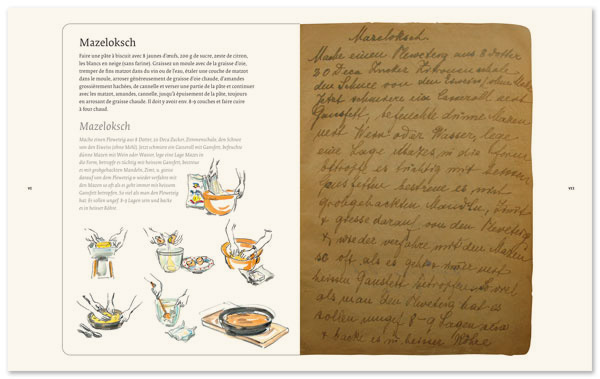 Mazeloksch
Faire une pâte à biscuit avec 8 jaunes d'œufs, 200 g de sucre, zeste de citron,
les blancs en neige (sans farine). Graissez un moule avec de la graisse d'oie,
tremper de fins matzot dans du vin ou de l'eau, étaler une couche de matzot
dans le moule, arroser généreusement de graisse d'oie chaude, d'amandes
grossièrement hachées, de cannelle et verser une partie de la pâte et continuer
avec les matzot, amandes, cannelle, jusqu'à épuisement de la pâte, toujours
en arrosant de graisse chaude. Il doit y avoir env. 8-9 couches et faire cuire
à four chaud.
Mazeloksch
Mache einen Pleweteig aus 8 Dotter, 20 Deca Zucker, Zitronenschale, den Schnee
von den Eiweisse (ohne Mehl). Jetzt schmiere ein Casseroll mit Gansfett, befeuchte
dünne Mazen mit Wein oder Wasser, lege eine Lage Mazes in
die Form, betropfe es tüchtig mit heissem Gansfett, bestreue
es mit grobgehackten Mandeln, Zimt, u. giesse
darauf von dem Pleweteig u. wieder verfahre mit
den Mazen so oft als es geht immer mit heissem
Gansfett betropfen. So viel als man den Pleweteig
hat. Es sollen ungef. 8-9 Lagen sein und backe
es in heisser Röhre.
Mazeloksch
Mache einen Pleweteig aus 8 Dotter
20 Deca Zucker Zitronenschale
den Schnee von den
Jetzt schmiere ein Casseroll mit
Gansfett, befeuchte dünne Mazen
mit Wein oder Wasser, lege
eine Lage Mazes in die
es tüchtig mit heissem
Gansfett bestreue es mit
grobgehackten Mandeln, Zimt
u giesse darauf von dem Pleweteig
u wieder verfahre mit den Mazen
so oft als es geht immer mit
heissem Gansfett betropfen So viel
als man den Pleweteig hat es
sollen ungef 8-9 Lagen sein
u backe es in heisser Röhre